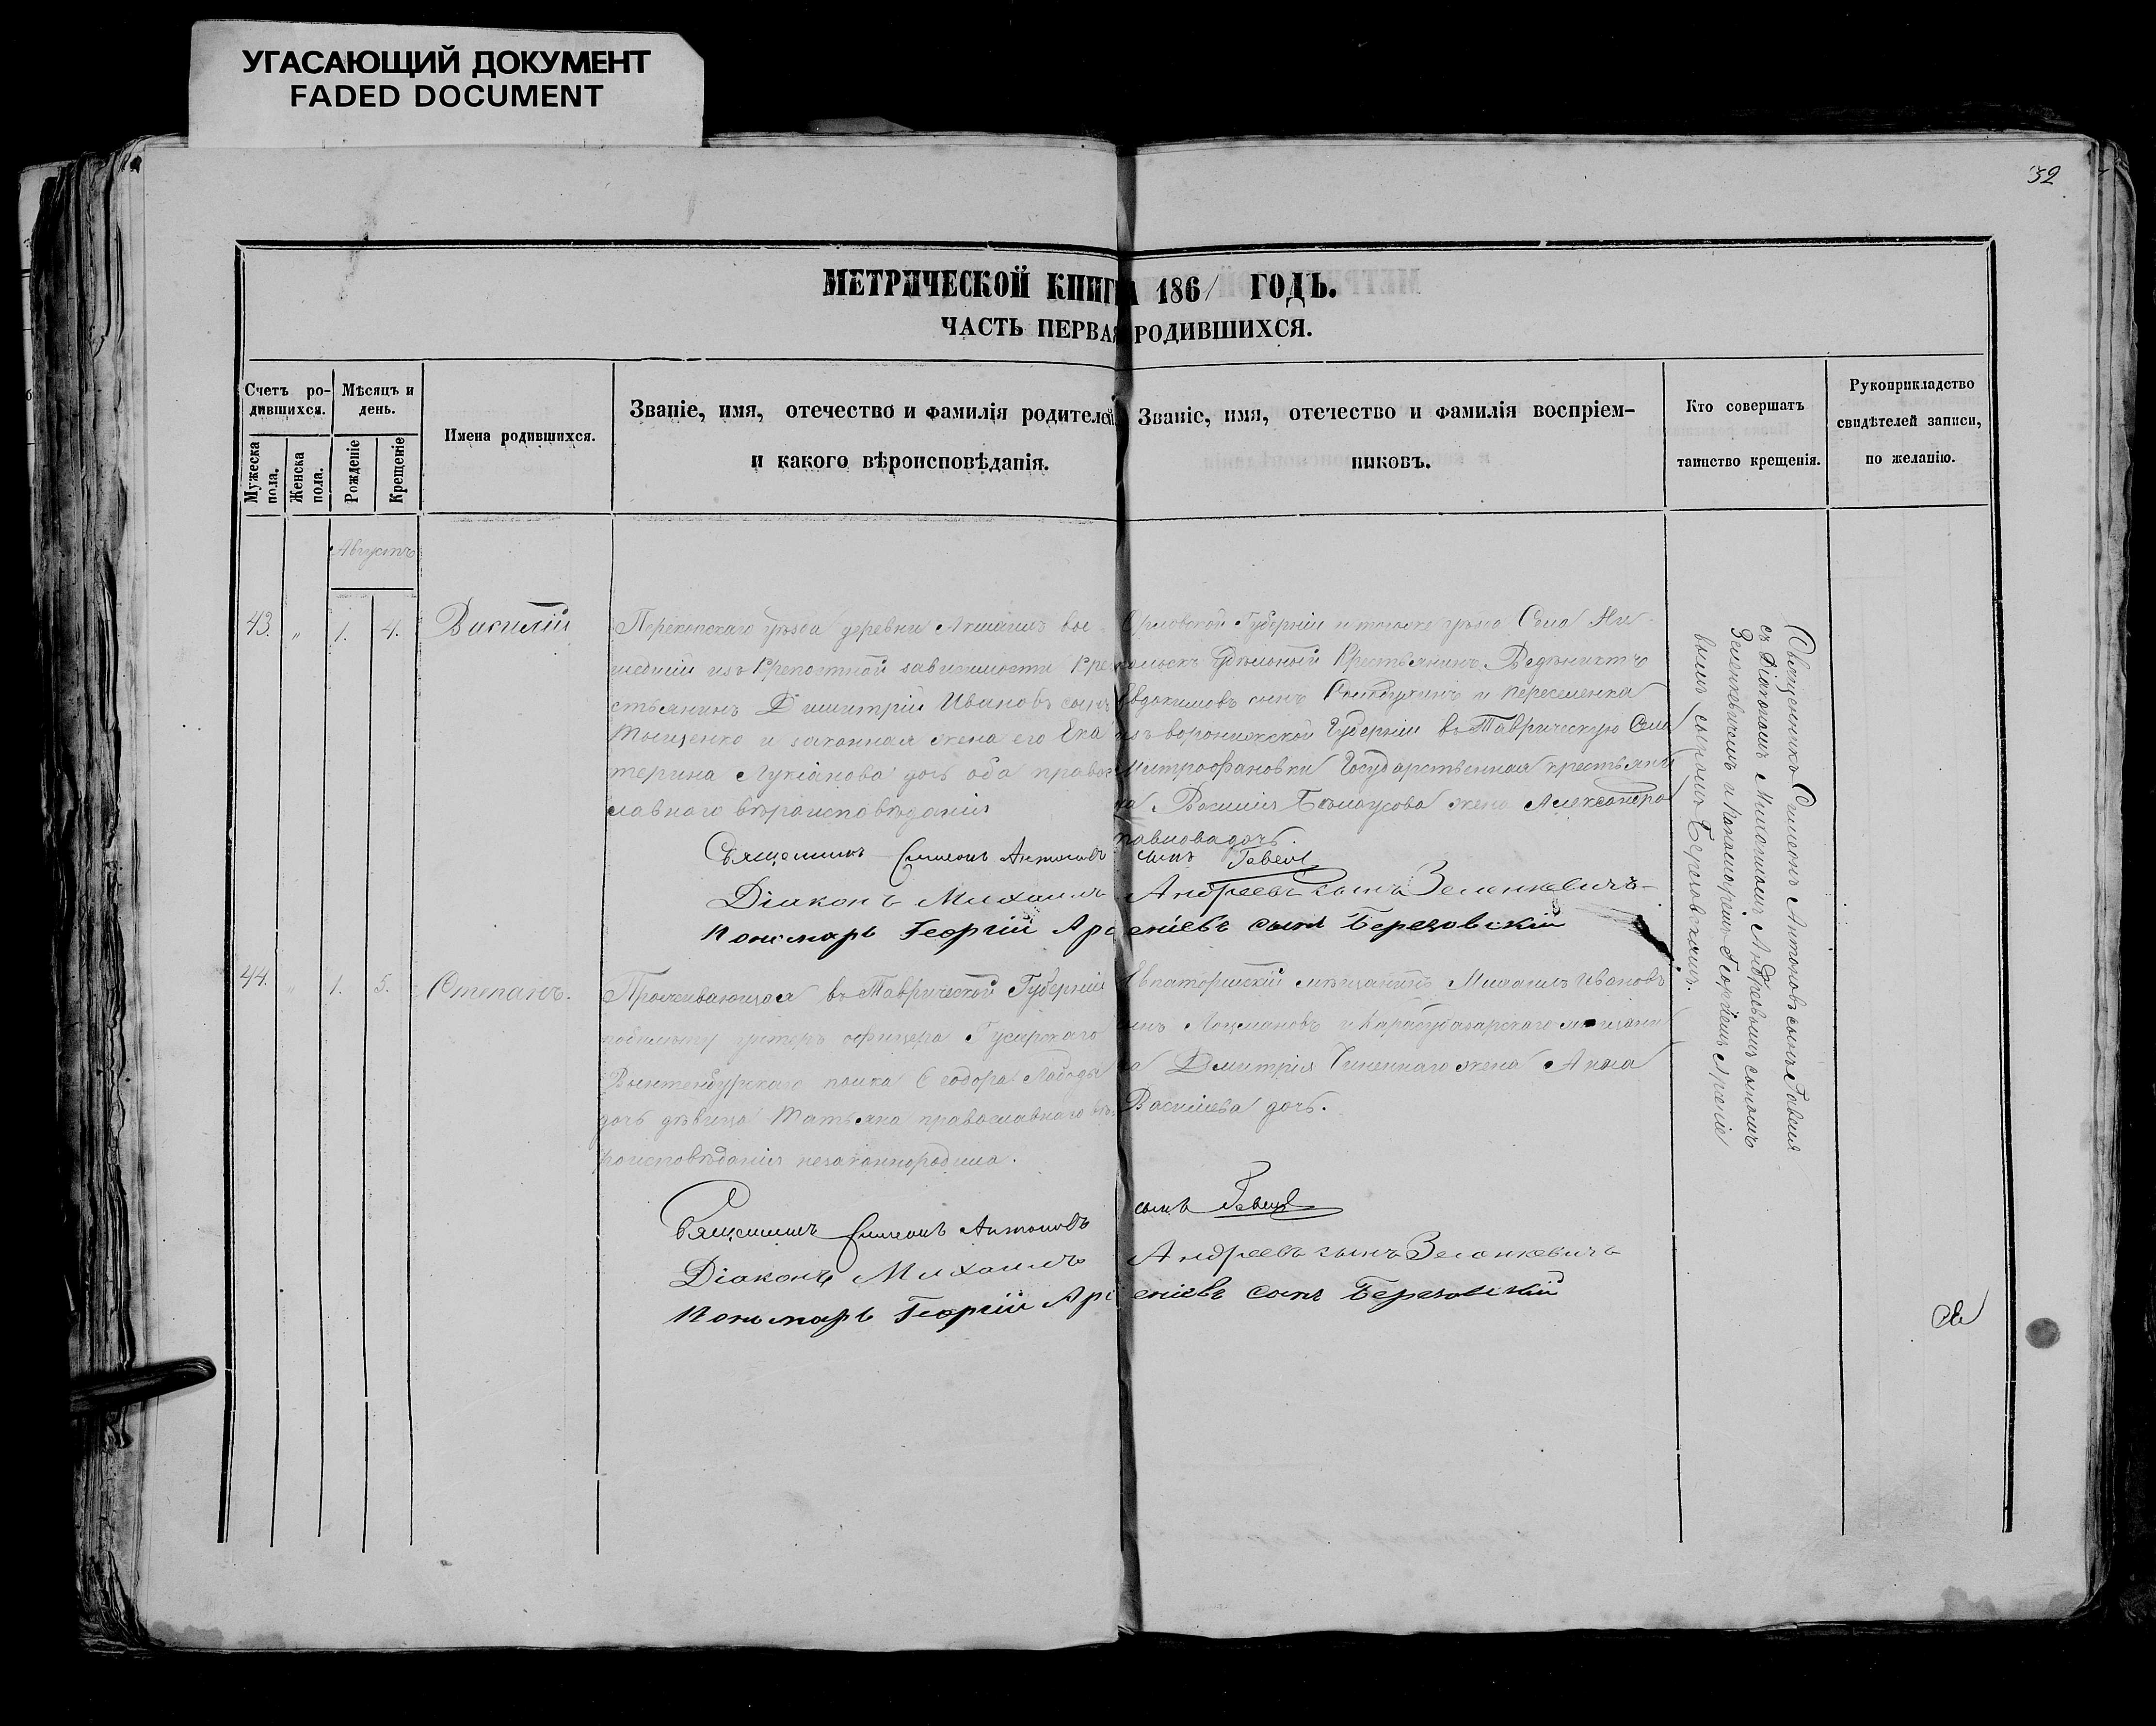 УГАСАЮЩИЙ ДОКУМЕНТ
FADED DOCUMENT
32
МЕТРИЧЕСКОЙ КНИГИ 1861 ГОДЪ.
ЧАСТЬ ПЕРВАЯ РОДИВШИХСЯ.
Счетъ родившихся.
Мужеска пола.
Женска пола.
Мѣсяцъ и день.
Рожденіе
Крещеніе
Имена родившихся.
Званіе, имя, отечество и фамилія родителей
и какого вѣроисповѣданія.
Званіе, имя, отечество и фамилія воспріем-
никовъ.
Кто совершатъ
таинство крещенія.
Рукоприкладство
свидѣтелей записи,
по желанію.
Августъ
43. „ 1. 4. Василій
Перекопскаго уѣзда деревни вы-
шедшій изъ крепостной зависимости кре
стьянинъ Димитрій Ивановъ сынъ
и законная жена его Ека
терина Лукіанова дочь оба право
славнаго вѣроисповѣданія
Орловской Губерніи и того же уѣзда Села
Удѣльный Крестьянинъ
Евдокимовъ сынъ и переселенка
изъ воронижской Губерніи въ Таврическую Села
Митрофановки Государственная крестьян
ка Василія Бѣлоусова жена Александра
павлова дочь.
Священникъ Симеонъ Антоновъ сынъ Гавель
Діаконъ Михаилъ Андреевъ сынъ Зеленкевичъ
Пономарь Георгій Арсеніевъ сынъ Березовскій
44. „ 1. 5. Степанъ.
Проживающая въ Таврической Губерніи
унтеръ офицера Гусарскаго
полка Ѳеодора Лободы
дочь дѣвица Татьяна православнаго вѣ-
роисповѣданія незаконнородила.
Евпаторійскій мѣщанинъ Михаилъ Ивановъ
сынъ Лоцмановъ и Карасубазарскаго мѣщани
на Дмитрія жена Анна
Васильева дочь.
Священникъ Симеонъ Антоновъ сынъ Гавель
Діаконъ Михаилъ Андреевъ сынъ Зеленкевичъ
Пономарь Георгій Арсеніевъ сынъ Березовскій
Священникъ Симеонъ Антоновъ сынъ Гавель
съ Діакономъ Михаиломъ Андреевымъ сыномъ
Зеленкевичемъ и Пономаремъ Георгіемъ Арсеніе
вымъ сыномъ Березовскимъ.